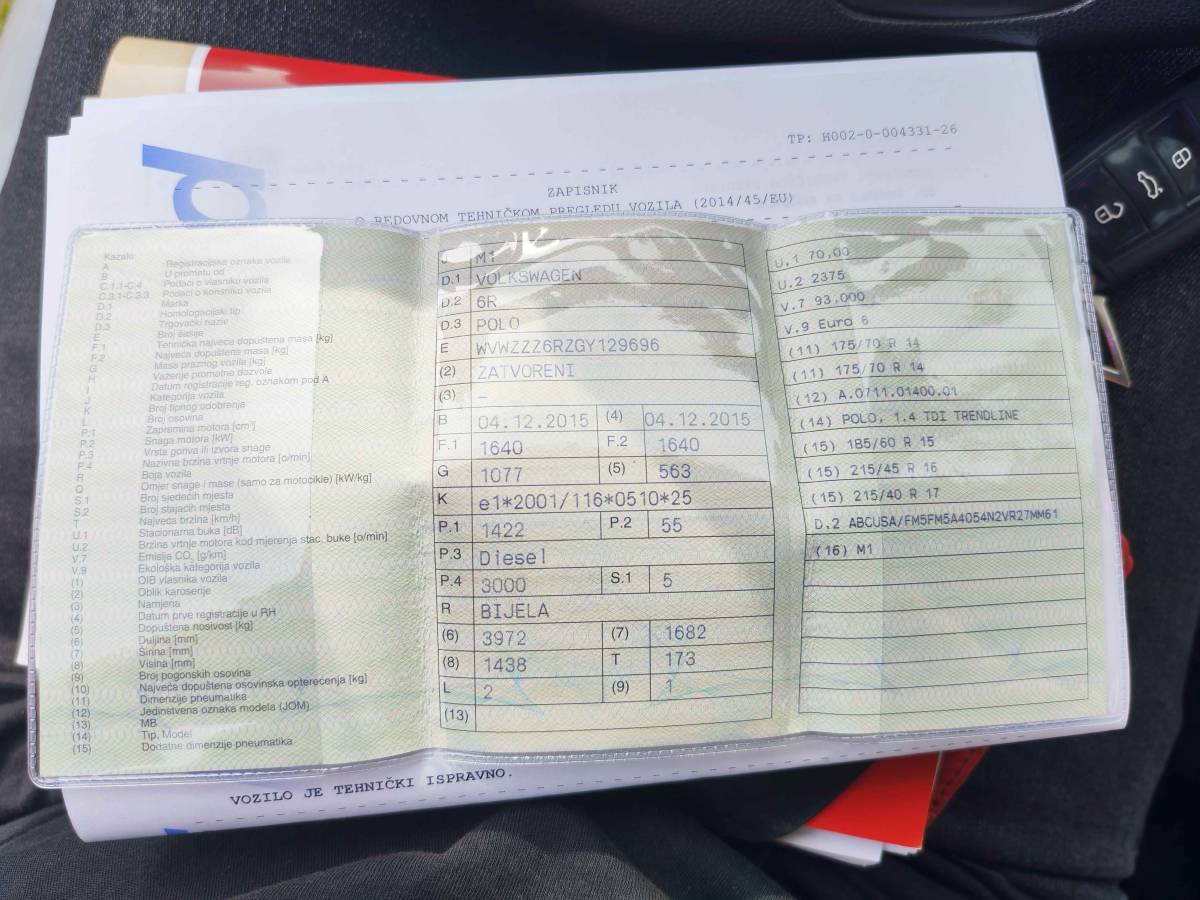 TP: H002-0-004331-26
ZAPISNIK
O REDOVNOM TEHNIČKOM PREGLEDU VOZILA (2014/45/EU)
Kazalo:
A Registracijska oznaka vozila
B U prometu od
C.1.1-C.4 Podaci o vlasniku vozila
C.3.1-C.3.3 Podaci o korisniku vozila
D.1 Marka
D.2 Homologacijski tip
D.3 Trgovački naziv
E Broj šasije
F.1 Tehnička najveća dopuštena masa [kg]
F.2 Najveća dopuštena masa [kg]
G Masa praznog vozila [kg]
H Važenje prometne dozvole
I Datum registracije reg. oznakom pod A
J Kategorija vozila
K Broj tipnog odobrenja
L Broj osovina
P.1 Zapremina motora [cm³]
P.2 Snaga motora [kW]
P.3 Vrsta goriva ili izvora snage
P.4 Nazivna brzina vrtnje motora [o/min]
R Boja vozila
Q Omjer snage i mase (samo za motocikle) [kW/kg]
S.1 Broj sjedećih mjesta
S.2 Broj stajaćih mjesta
T Najveća brzina [km/h]
U.1 Stacionarna buka [dB]
U.2 Brzina vrtnje motora kod mjerenja stac. buke [o/min]
V.7 Emisija CO₂ [g/km]
V.9 Ekološka kategorija vozila
(1) OIB vlasnika vozila
(2) Oblik karoserije
(3) Namjena
(4) Datum prve registracije u RH
(5) Dopuštena nosivost [kg]
(6) Duljina [mm]
(7) Širina [mm]
(8) Visina [mm]
(9) Broj pogonskih osovina
(10) Najveća dopuštena osovinska opterećenja [kg]
(11) Dimenzije pneumatika
(12) Jedinstvena oznaka modela (JOM)
(13) MB
(14) Tip, Model
(15) Dodatne dimenzije pneumatika
J M1
D.1 VOLKSWAGEN
D.2 6R
D.3 POLO
E WVWZZZ6RZGY129696
(2) ZATVORENI
(3) –
B 04.12.2015 (4) 04.12.2015
F.1 1640 F.2 1640
G 1077 (5) 563
K e1*2001/116*0510*25
P.1 1422 P.2 55
P.3 Diesel
P.4 3000 S.1 5
R BIJELA
(6) 3972 (7) 1682
(8) 1438 T 173
L 2 (9) 1
(13)
U.1 70,00
U.2 2375
V.7 93,000
V.9 Euro 6
(11) 175/70 R 14
(11) 175/70 R 14
(12) A.0711.01400.01
(14) POLO, 1.4 TDI TRENDLINE
(15) 185/60 R 15
(15) 215/45 R 16
(15) 215/40 R 17
D.2 ABCUSA/FM5FM5A4054N2VR27MM61
(16) M1
VOZILO JE TEHNIČKI ISPRAVNO.